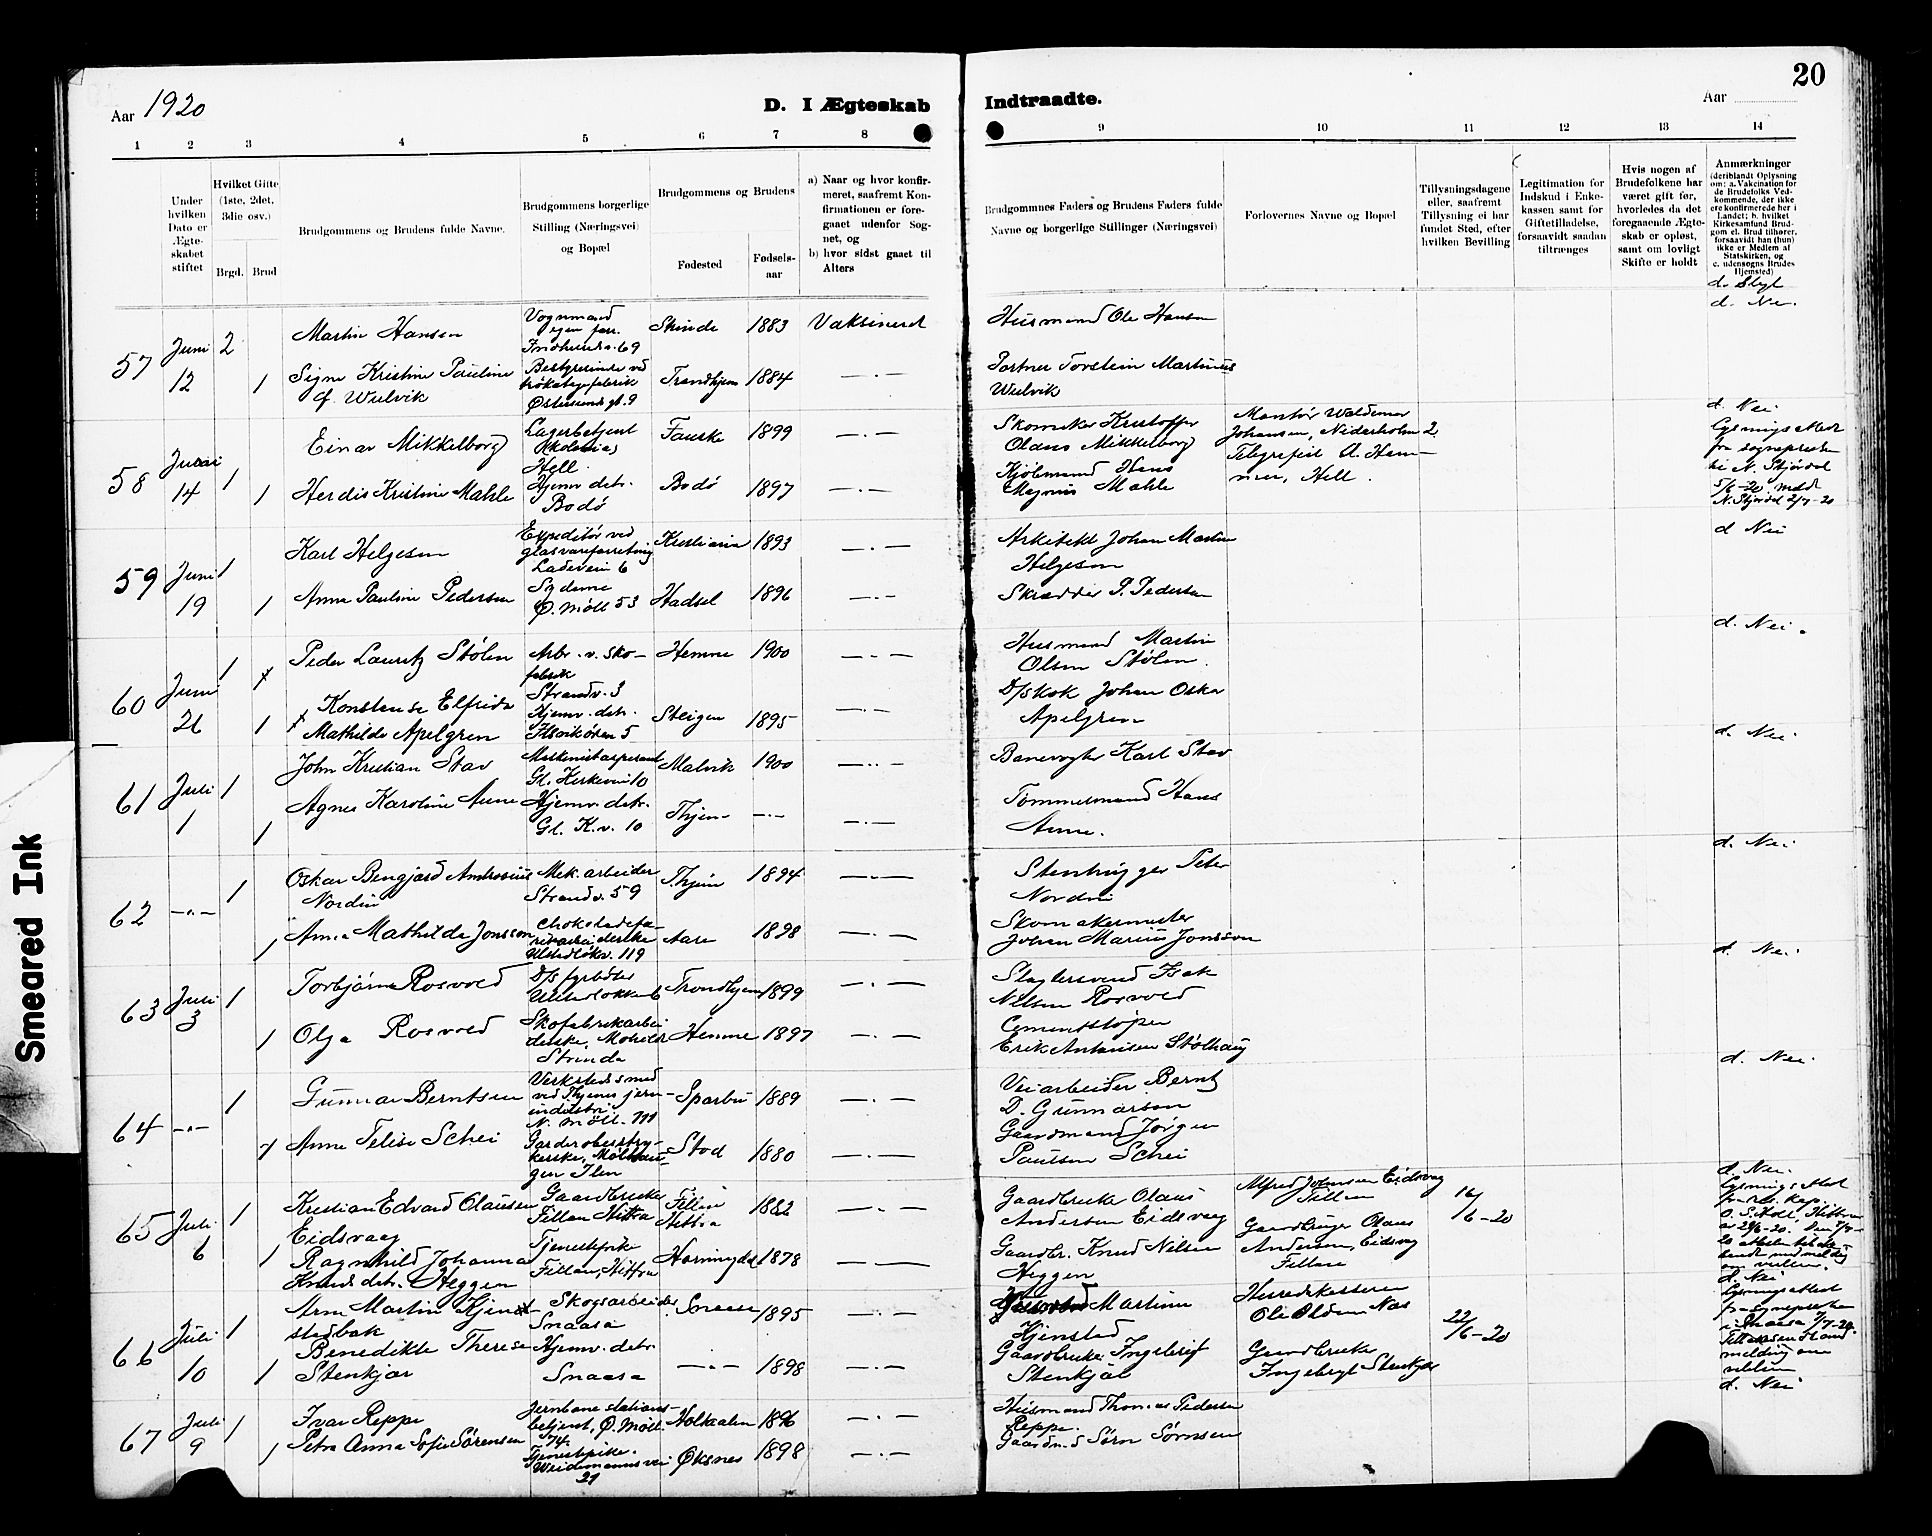 20
Aar 1920
D. I Ægteskab
Indtraadte.
Aar
1 2 3 4 5 6 7 8 9 10 11 12 13 14
Under hvilken Dato er Ægteskabet stiftet
Hvilket Gifte (1ste, 2det, 3die osv.)
Brgd. Brud
Brudgommens og Brudens fulde Navne.
Brudgommens borgerlige Stilling (Næringsvei) og Bopæl
Brudgommens og Brudens
Fødested
Fødselsaar
a) Naar og hvor konfirmeret, saafremt Konfirmationen er foregaaet udenfor Sognet, og
b) hvor sidst gaaet til Alters
Brudgommnes Faders og Brudens Faders fulde Navne og borgerlige Stillinger (Næringsvei)
Forlovernes Navne og Bopæl
Tillysningsdagene eller, saafremt Tillysning ei har fundet Sted, efter hvilken Bevilling
Legitimation for Indskud i Enkekassen samt for Giftetilladelse, forsaavidt saadan tiltrænges
Hvis nogen af Brudefolkene har været gift før, hvorledes da det foregaaende Ægteskab er opløst, samt om lovligt Skifte er holdt
Anmærkninger (deriblandt Oplysning om: a. Vakcination for de Brudefolks Vedkommende, der ikke ere konfirmerede her i Landet; b. hvilket Kirkesamfund Brudgom el. Brud tilhører, forsaavidt han (hun) ikke er Medlem af Statskirken, og c. udensogns Brudes Hjemsted)
57 Juni 12 2 Martin Hansen Vognmand Strinda 1883 Vaksineret Husmand Ole Hansen d. Nei.
1 Signe Kristine Pauline Wulvik Bestyrerinde ved Trondhjem 1884 — . — Portner Torstein Martinus Wulvik
58 Juni 14 1 Einar Mikkelborg Lagerbetjent Hell. Fauske 1899 — . — Skomaker Kristoffer Olaus Mikkelborg Montør Waldemar Johansen, d. Nei
1 Herdis Kristine Mahle Hjemv. detr. Bodø Bodø 1897 — . — Kjøbmand Hans Magnus Mahle Hell. 5/6-20
59 Juni 19 1 Karl Helgesen Expeditør ved glasvareforretning Ladevein 6 Kristiania 1893 — . — Arkitekt Johan Martin Helgesen d Nei
1 Anna Pauline Pedersen Syderne Ø. Møll 53 Hadsel 1896 — . — Skrædder P. Pedersen
60 Juni 26 1 Peder Lauritz Stølen Arb. v. skofabrik Strandv. 3 Hemne 1900 — . — Husmand Martin Olsen Stølen. d. Nei.
1 Konstanse Elfrida Mathilde Apelgren Hjemv. detr. Ilsvikøren 5 Steigen 1895 — . — D/Skok Johan Oskar Apelgren
61 Juli 1 1 John Kristian Stav Maskinistaspirant Gl. Kirkevei 10 Malvik 1900 — .. — Banevogter Karl Stav d. Nei.
1 Agnes Karoline Aune Hjemv. detr. Gl. K.v. 10 Thjem — . — — . — Tømmermand Hans Aune.
62 — . — 1 Oskar Bengjard Ambrosius Nordin Mek. arbeider Strandv. 59 Thjem 1894 — . — Stenhugger Peter Nordin d. Nei.
1 Anna Mathilde Jonsson Aare 1898 — . — Skomakermester Johan Marius Jonsson
63 Juli 3 1 Torbjørn Rosvold D/S fyrbøter Trondhjem 1899 — . — Slagtersvend Isak Nilsen Rosvold d. Nei.
1 Olga Rosvold Skofabrikarbeiderske, Strinda Hemne 1897 — . — Cementstøper Erik Antonsen Stølhaug
64 — . — 1 Gunnar Berntsen Verkstedssmed ved Thjems jernindustri Sparbu 1889 — . — Veiarbeider Bernt D. Gunnarson d. Nei.
1 Anna Schei Garderobestrykerske, Ilen Stod 1880 — . — Gaardmand Jørgen Paulsen Schei
65 Juli 6 1 Kristian Edvard Olausen Eidsvaag Gaardbruker Fillan Hitra Fillan Hitra 1882 — . — Gaardbruker Olaus Andersen Eidsvaag Alfred Johansen Eidsvag Fillan 16/6-20 d. Nei.
1 Ragnhild Johanna Knudsdtr. Heggen Tjenestepike Fillan, Hitra Horningdal 1878 — . — Gaardbr. Knud Nilsen Heggen Gaardbruger Olaus Andersen, Eidsvag Fillan
66 Juli 10 1 Arne Martin Skogsarbeider Snaasa 1895 — . — Martin Ole Olden Nas 22/6-20 d. Nei
1 Benedikte Therese Stenkjær Hjemv. detr. Snaasa — . — 1898 — . — Gaardbruker Ingebrigt Stenkjær Gaardbruker Ingebrigt Stenkjær
67 Juli 9 1 Ivar Reppe Jernbanestationsbetjent, Ø. Møll. 74. Holtaalen 1896 — . — Husmand Thomas Pedersen Reppe. d. Nei
1 Petra Anna Sofie Sørensen Tjenestepike. Weidemannsvei 29 Øksnes 1898 — . — Gaardm. Sørensen
Smeared Ink